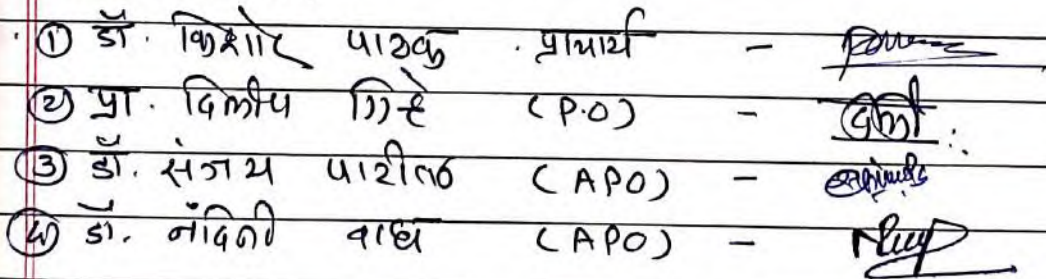 ① डॉ. किशोर पाठक . प्राचार्य -
② प्रा. दिलीप गिर्‍हे (P.O) -
③ डॉ. संजय पाटील (APO) -
④ डॉ. नंदिनी वाघ (APO) -